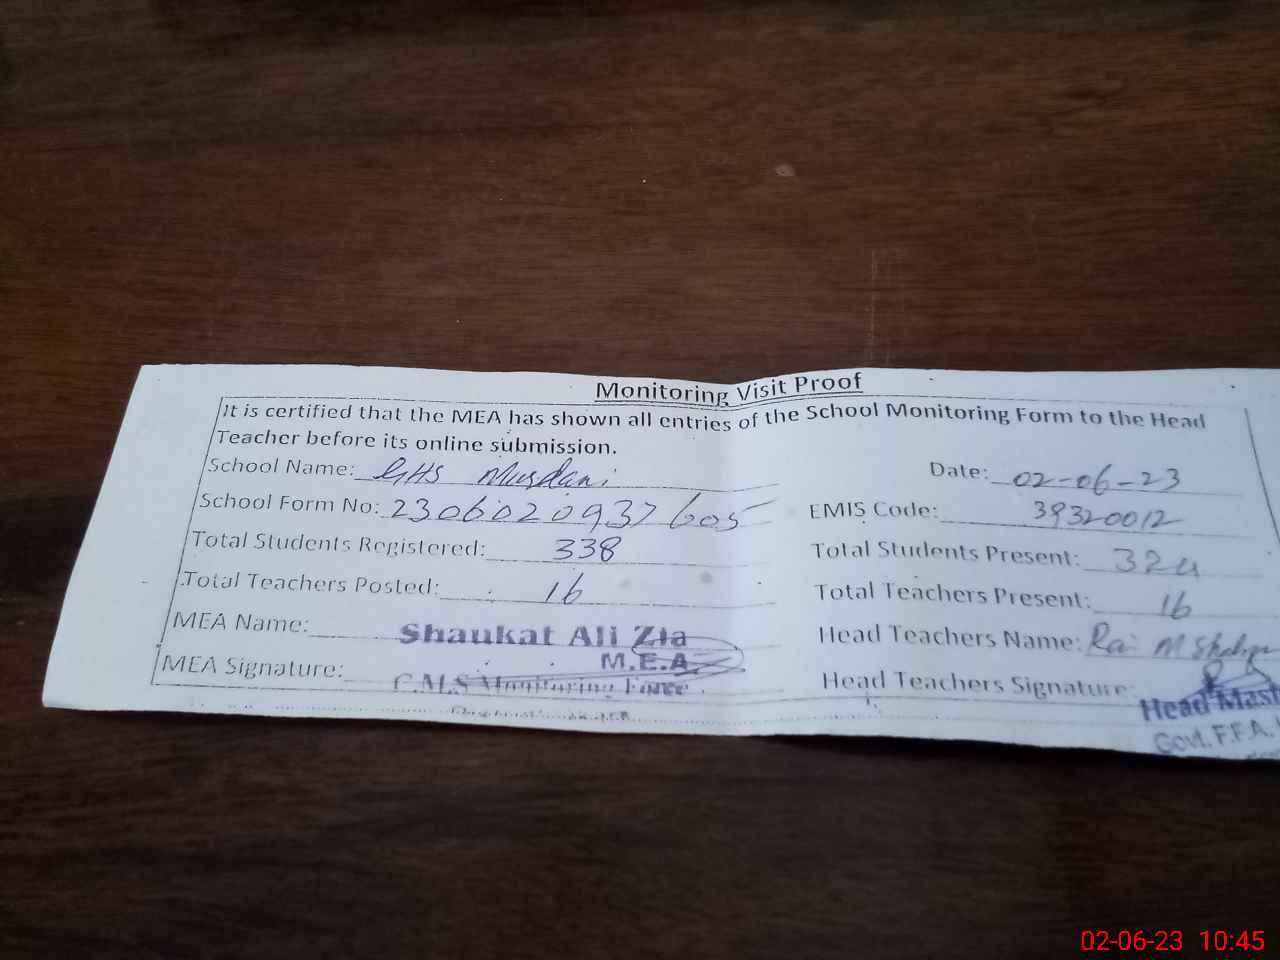 Monitoring Visit Proof
It is certified that the MEA has shown all entries of the School Monitoring Form to the Head
Teacher before its online submission.
School Name: GHS Date: 02-06-23
School Form No: 2306020937605 EMIS Code: 39320012
Total Students Registered: 338 Total Students Present: 324
Total Teachers Posted: 16 Total Teachers Present: 16
MEA Name: Shaukat Ali Zia Head Teachers Name: Rai M
M.E.A
MEA Signature: C.M.S Monitoring Force Head Teachers Signature:
Head Mast
Govt. F.F.A.
02-06-23 10:45